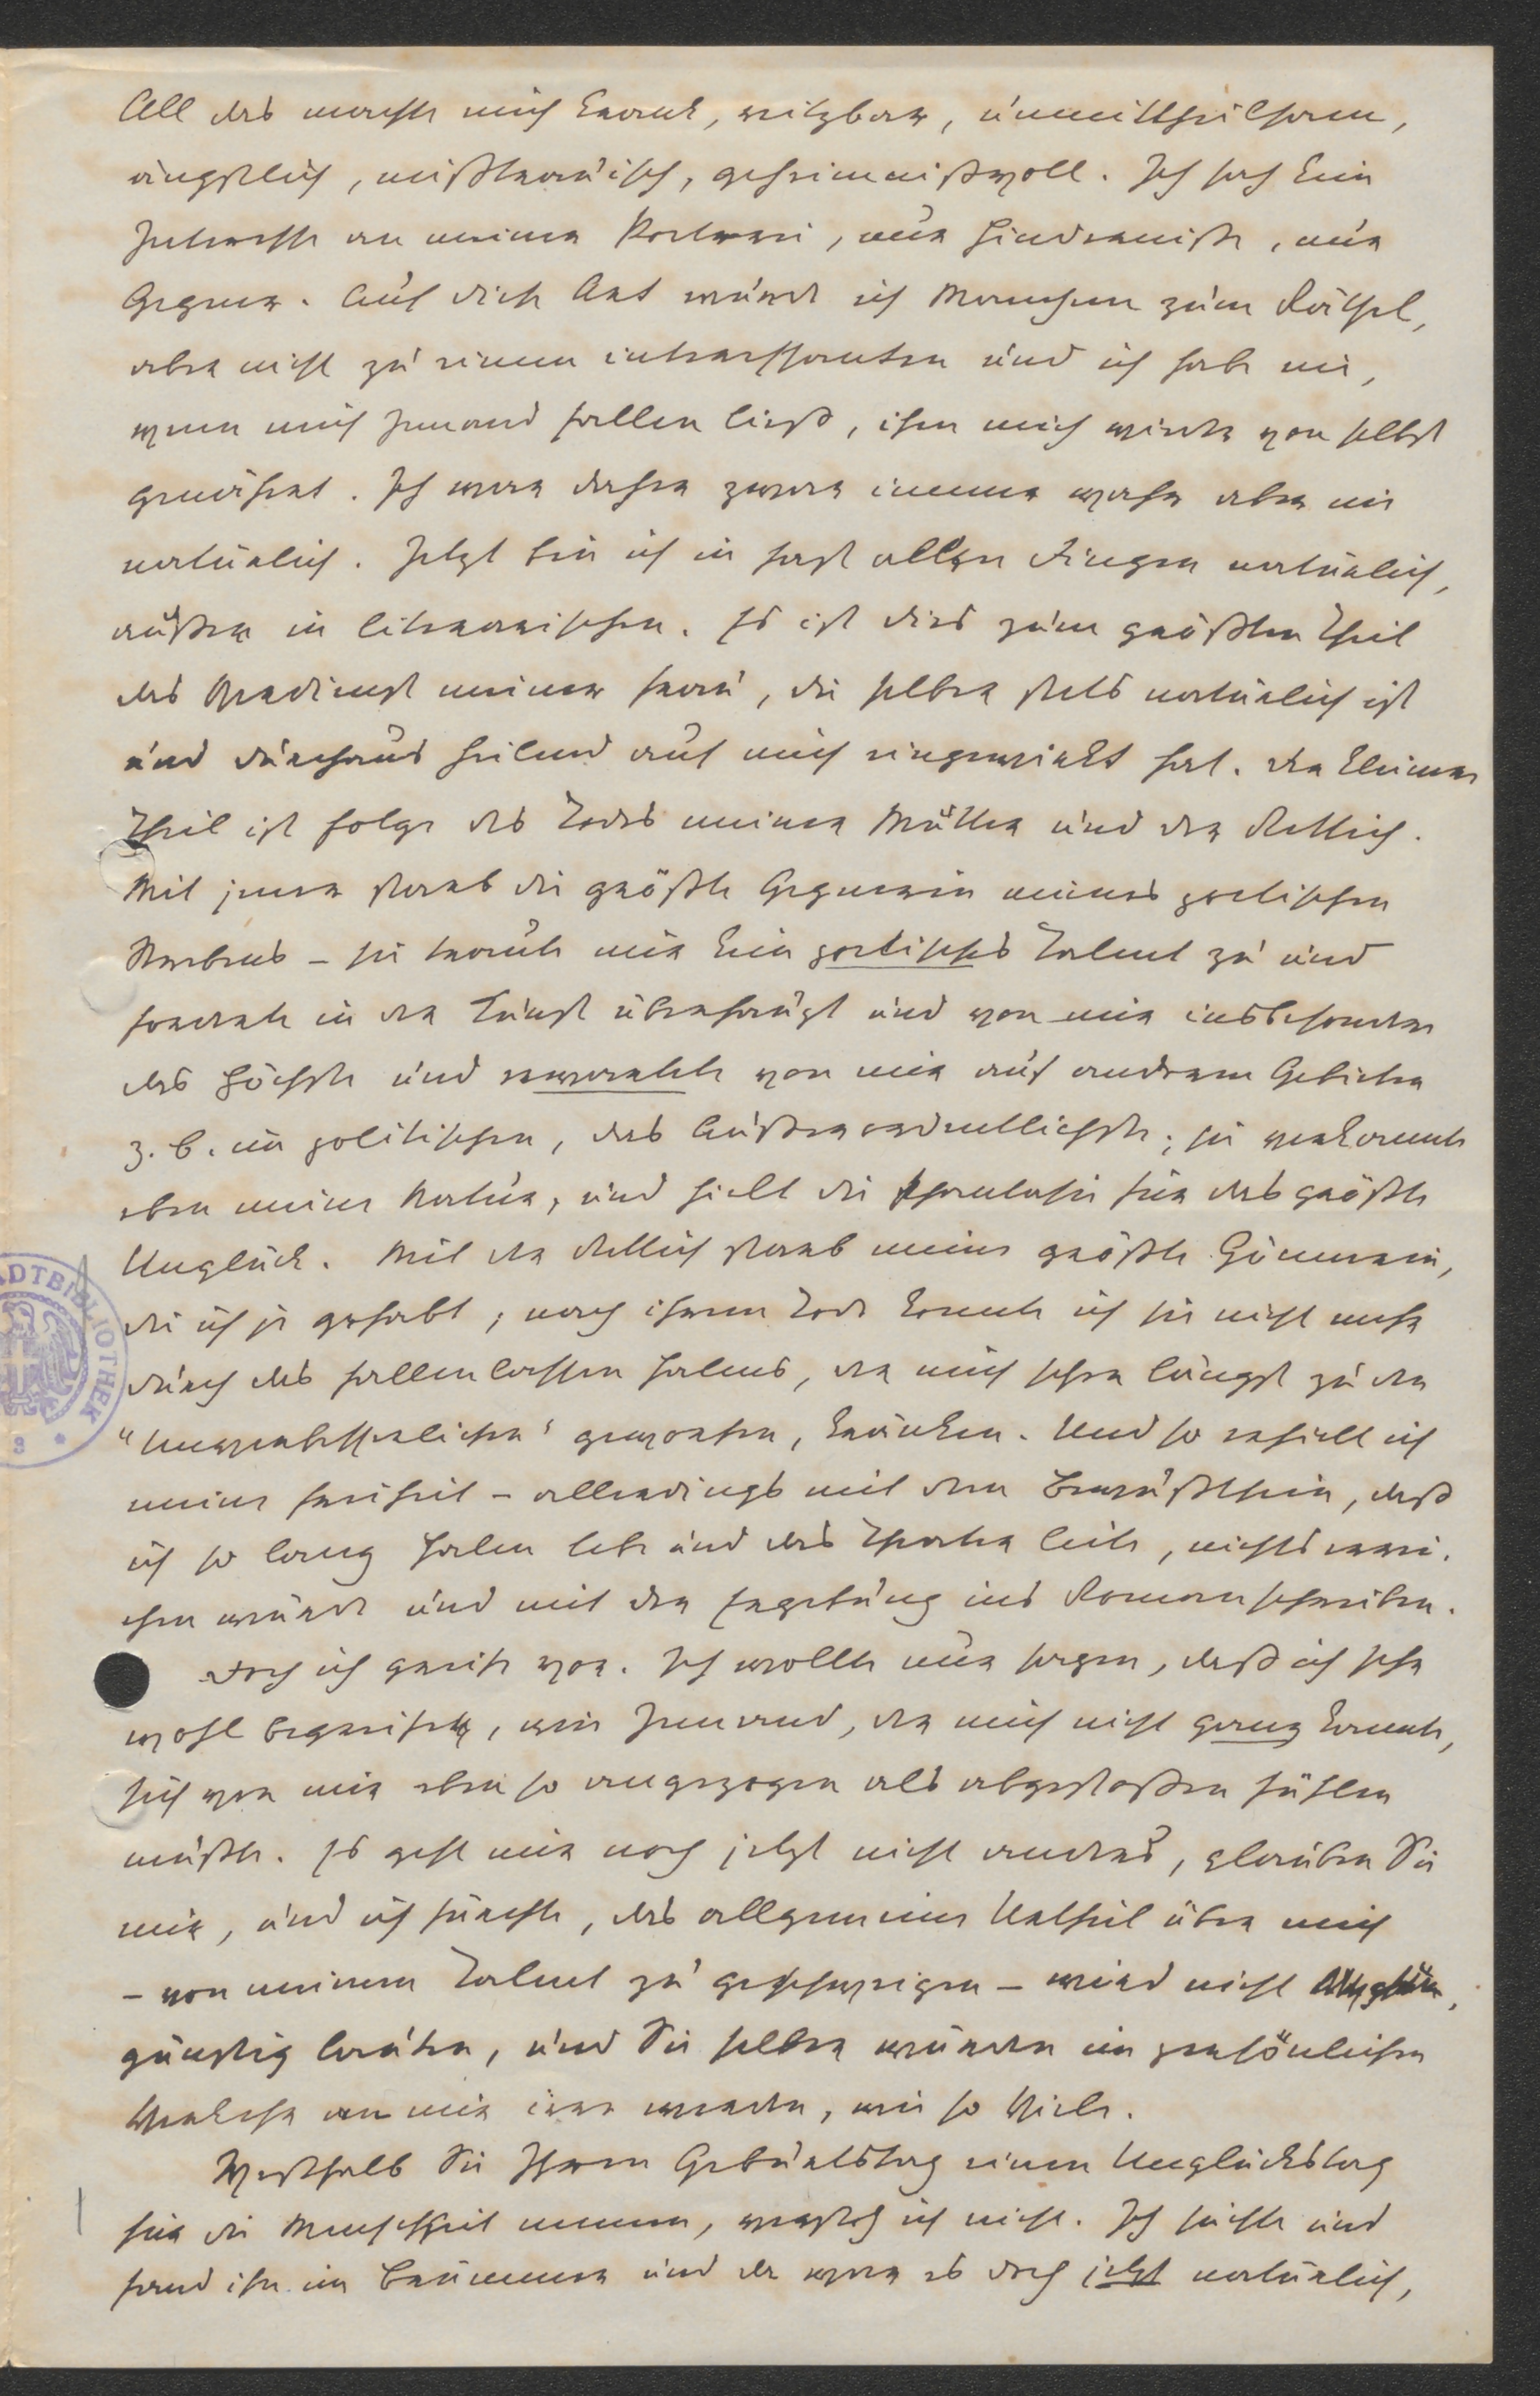 All das machte mich krank, reitzbar, unmittheilsam,
ängstlich, mißtrauisch, geheimnißvoll. Ich sah kein
Interesse an meiner Partei, nur Hindernisse, nur
Gegner. Auf diese Art wurde ich Manchem zum Räthsel,
aber nicht zu einem interessanten und ich habe nie,
wenn mich Jemand fallen ließ, ihm mich wieder von selbst
genähert. Ich war daher zwar immer wahr aber nie
natürlich. Jetzt bin ich in fast allen Dingen natürlich,
außer in literarischen. Es ist dies zum größten Theil
das Verdienst meiner Frau, die selber stets natürlich ist
und durchaus heilend auf mich eingewirkt hat. Der kleinere
Theil ist Folge des Todes meiner Mutter und der Rettich.
Mit jener starb die größte Gegnerin meines poetischen
Strebens – sie traute mir kein poetisches Talent zu und
forderte in der Kunst überhaupt und von mir insbesondere
das Höchste und erwartete von mir auf anderem Gebiete
z. B. im politischen, das Außerordentlichste; sie verkannte
eben meine Natur, und hielt die Phantasie für das größte
Unglück. Mit der Rettich starb meine größte Gönnerin,
die ich je gehabt; nach ihrem Tode konnte ich sie nicht mehr
durch das Fallenlassen Halms, der mich schon längst zu den
"Unverbesserlichen" geworfen, kränken. Und so erhielt ich
meine Freiheit – allerdings mit dem Bewußtsein, daß
ich so lang Halm lebe und das Theater leite, nichts errei-
chen würde und mit der Ergebung ins Romanschreiben.
Doch ich greife vor. Ich wollte nur sagen, daß ich sehr
wohl begreife, wie Jemand, der mich nicht ganz kannte,
sich von mir eben so angezogen als abgestoßen fühlen
mußte. Es geht mir noch jetzt nicht anders, glauben Sie
mir, und ich fürchte, das allgemeine Urtheil über mich
– von meinem Talent zu geschweigen – wird nicht
günstig lauten, und Sie selber würden im persönlichen
Verkehr an mir irre werden, wie so Viele.
Weßhalb Sie Ihren Geburtstag einen Unglückstag
für die Menschheit nennen, versteh ich nicht. Ich suchte und
fand ihn im Brümmer und da war es doch jetzt natürlich,